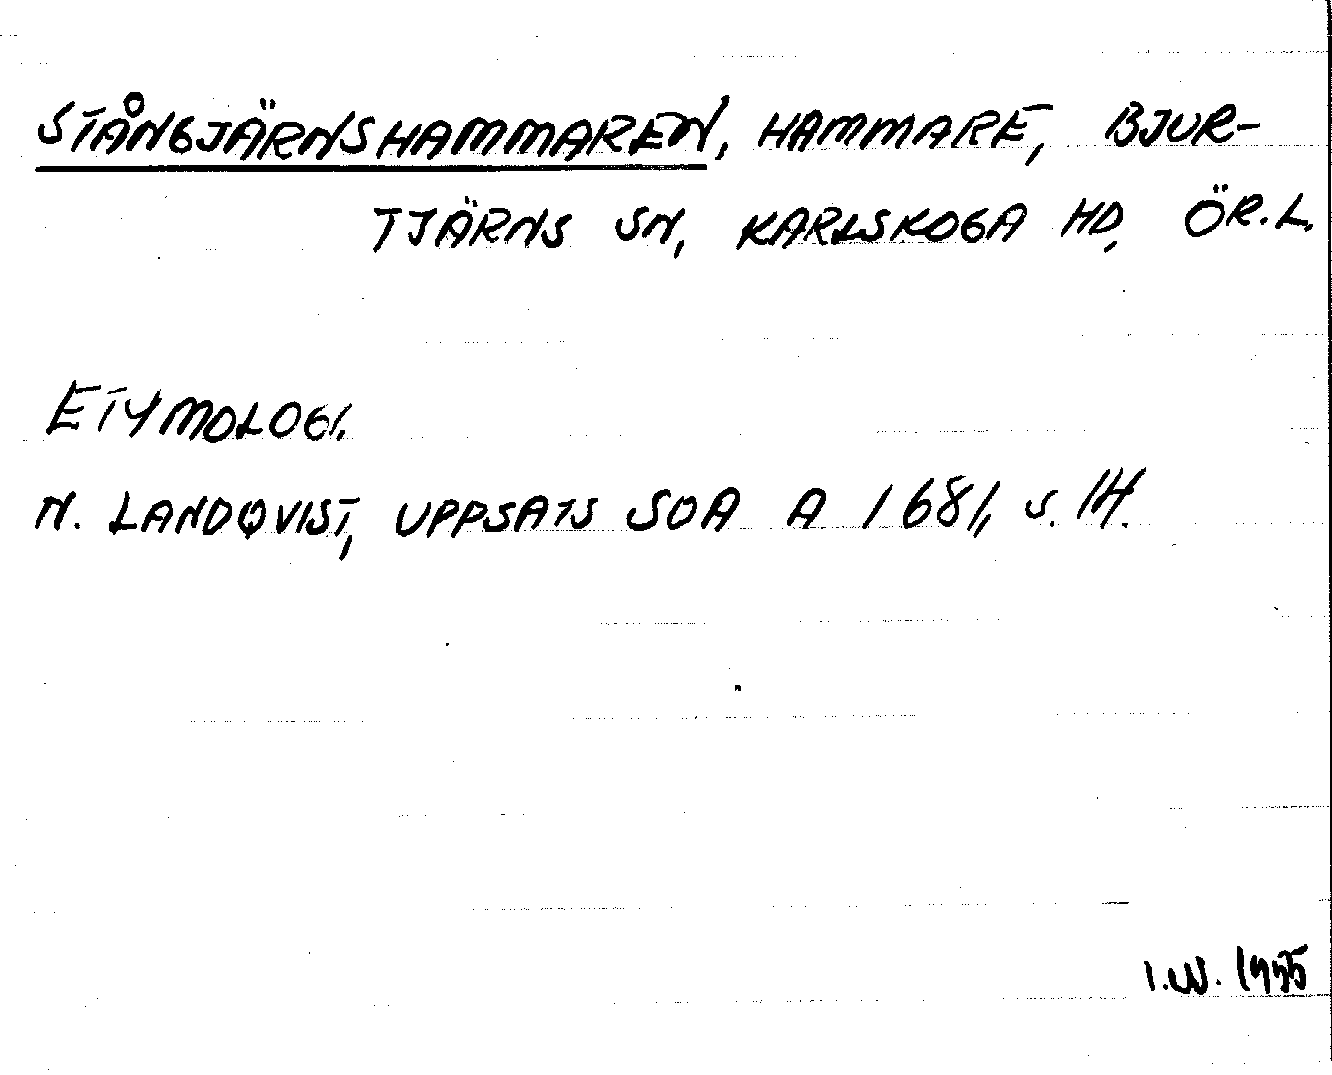 STÅNGJÄRNSHAMMAREN, HAMMARE, BJUR-
TJÄRNS SN, KARLSKOGA HD, ÖR.L.
ETYMOLOGI.
N. LANDQVIST, UPPSATS SOA A 1681, S. 14.
I.W. 1955